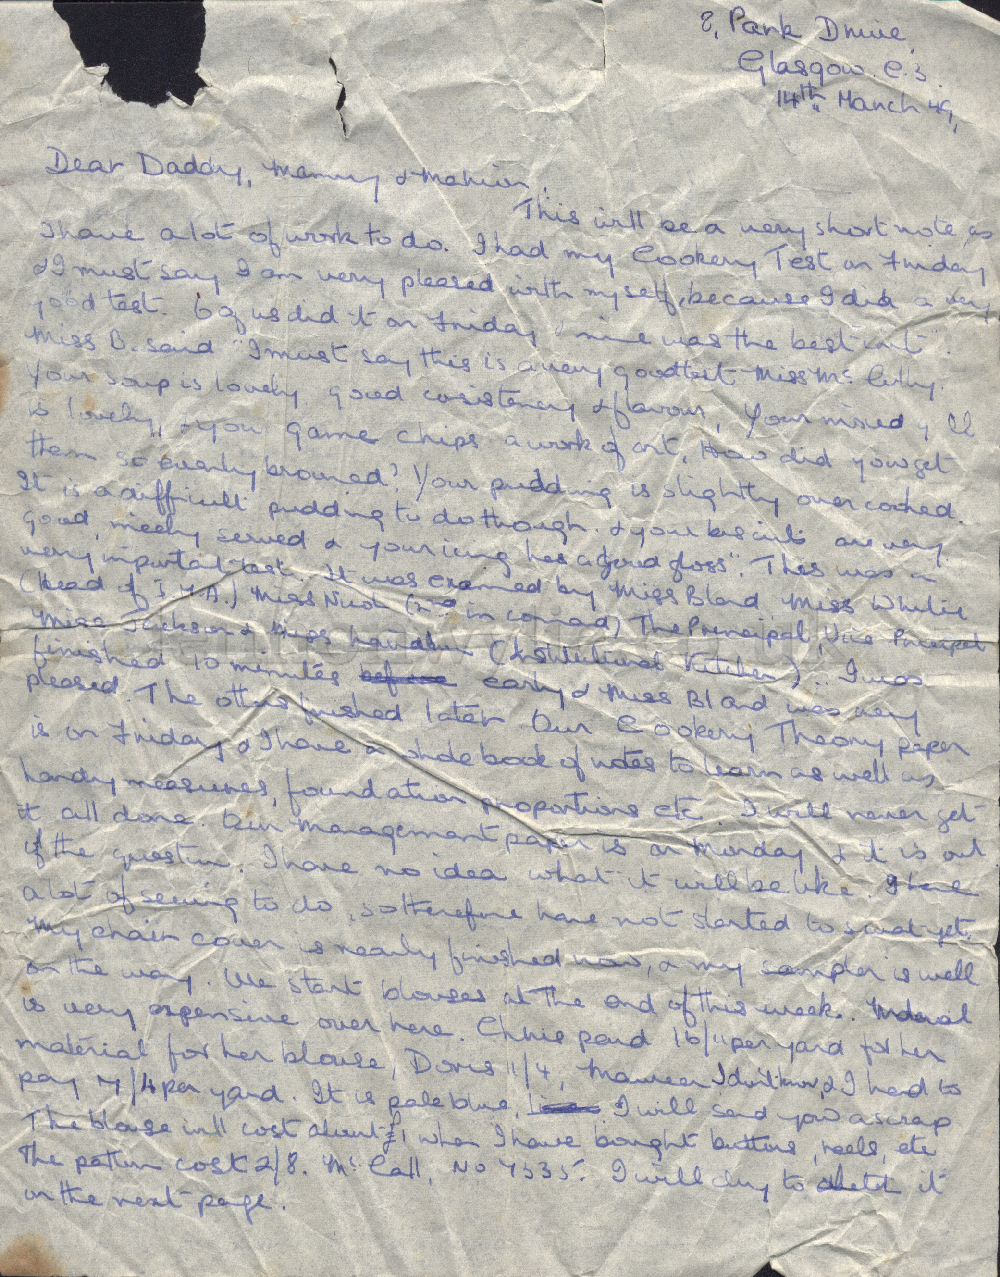 8, Park Drive,
Glasgow. C.3.
14th March 49,
Dear Daddy, Mammy &
This will be a very short note, as
I have a lot of work to do. I had my Cookery Test on Friday
& I must say I am very pleased with myself, because I did a very
good test. 6 of us did it on Friday & mine was the best "
Miss B. said "I must say this is a very good test Miss Mc.
Your soup is lovely good consistency & flavour, Your mixed
is lovely, & your game chips a work of art, How did you get
them so evenly browned? Your pudding is slightly over cooked.
It is a difficult pudding to do though. & your biscuits are very
good, nicely served & your icing has a good gloss". This was a
very important test. It was examed by Miss Bland, Miss White
(Head of I.M.A.) Miss (2nd in comand) The Principal, Vice Principal
Miss Jackson & Miss (Institutional Kitchen). I was
finished 10 minutes before early & Miss Bland was very
pleased. The others finished later. Our Cookery Theory paper
is on Friday & I have a whole book of notes to learn as well as,
handy measures, foundation proportions etc. I will never get
it all done. Our management paper is on Monday & it is out
of the question. I have no idea what it will be like. I have
a lot of sewing to do, so therefore have not started to swat yet.
My chair cover is nearly finished now, & my sampler is well
on the way. We start blouses at the end of this week. Material
is very expensive over here. paid 16/11 per yard for her
material for her blouse, Doris 11/4, Maureen I don't know, & I had to
pay 7/4 per yard. It is pale blue, I will send you a scrap
The blouse will cost about £1 when I have bought buttons, reels, etc
The pattern cost 2/8. Mc Call, No 7535. I will try to sketch it
on the next page.